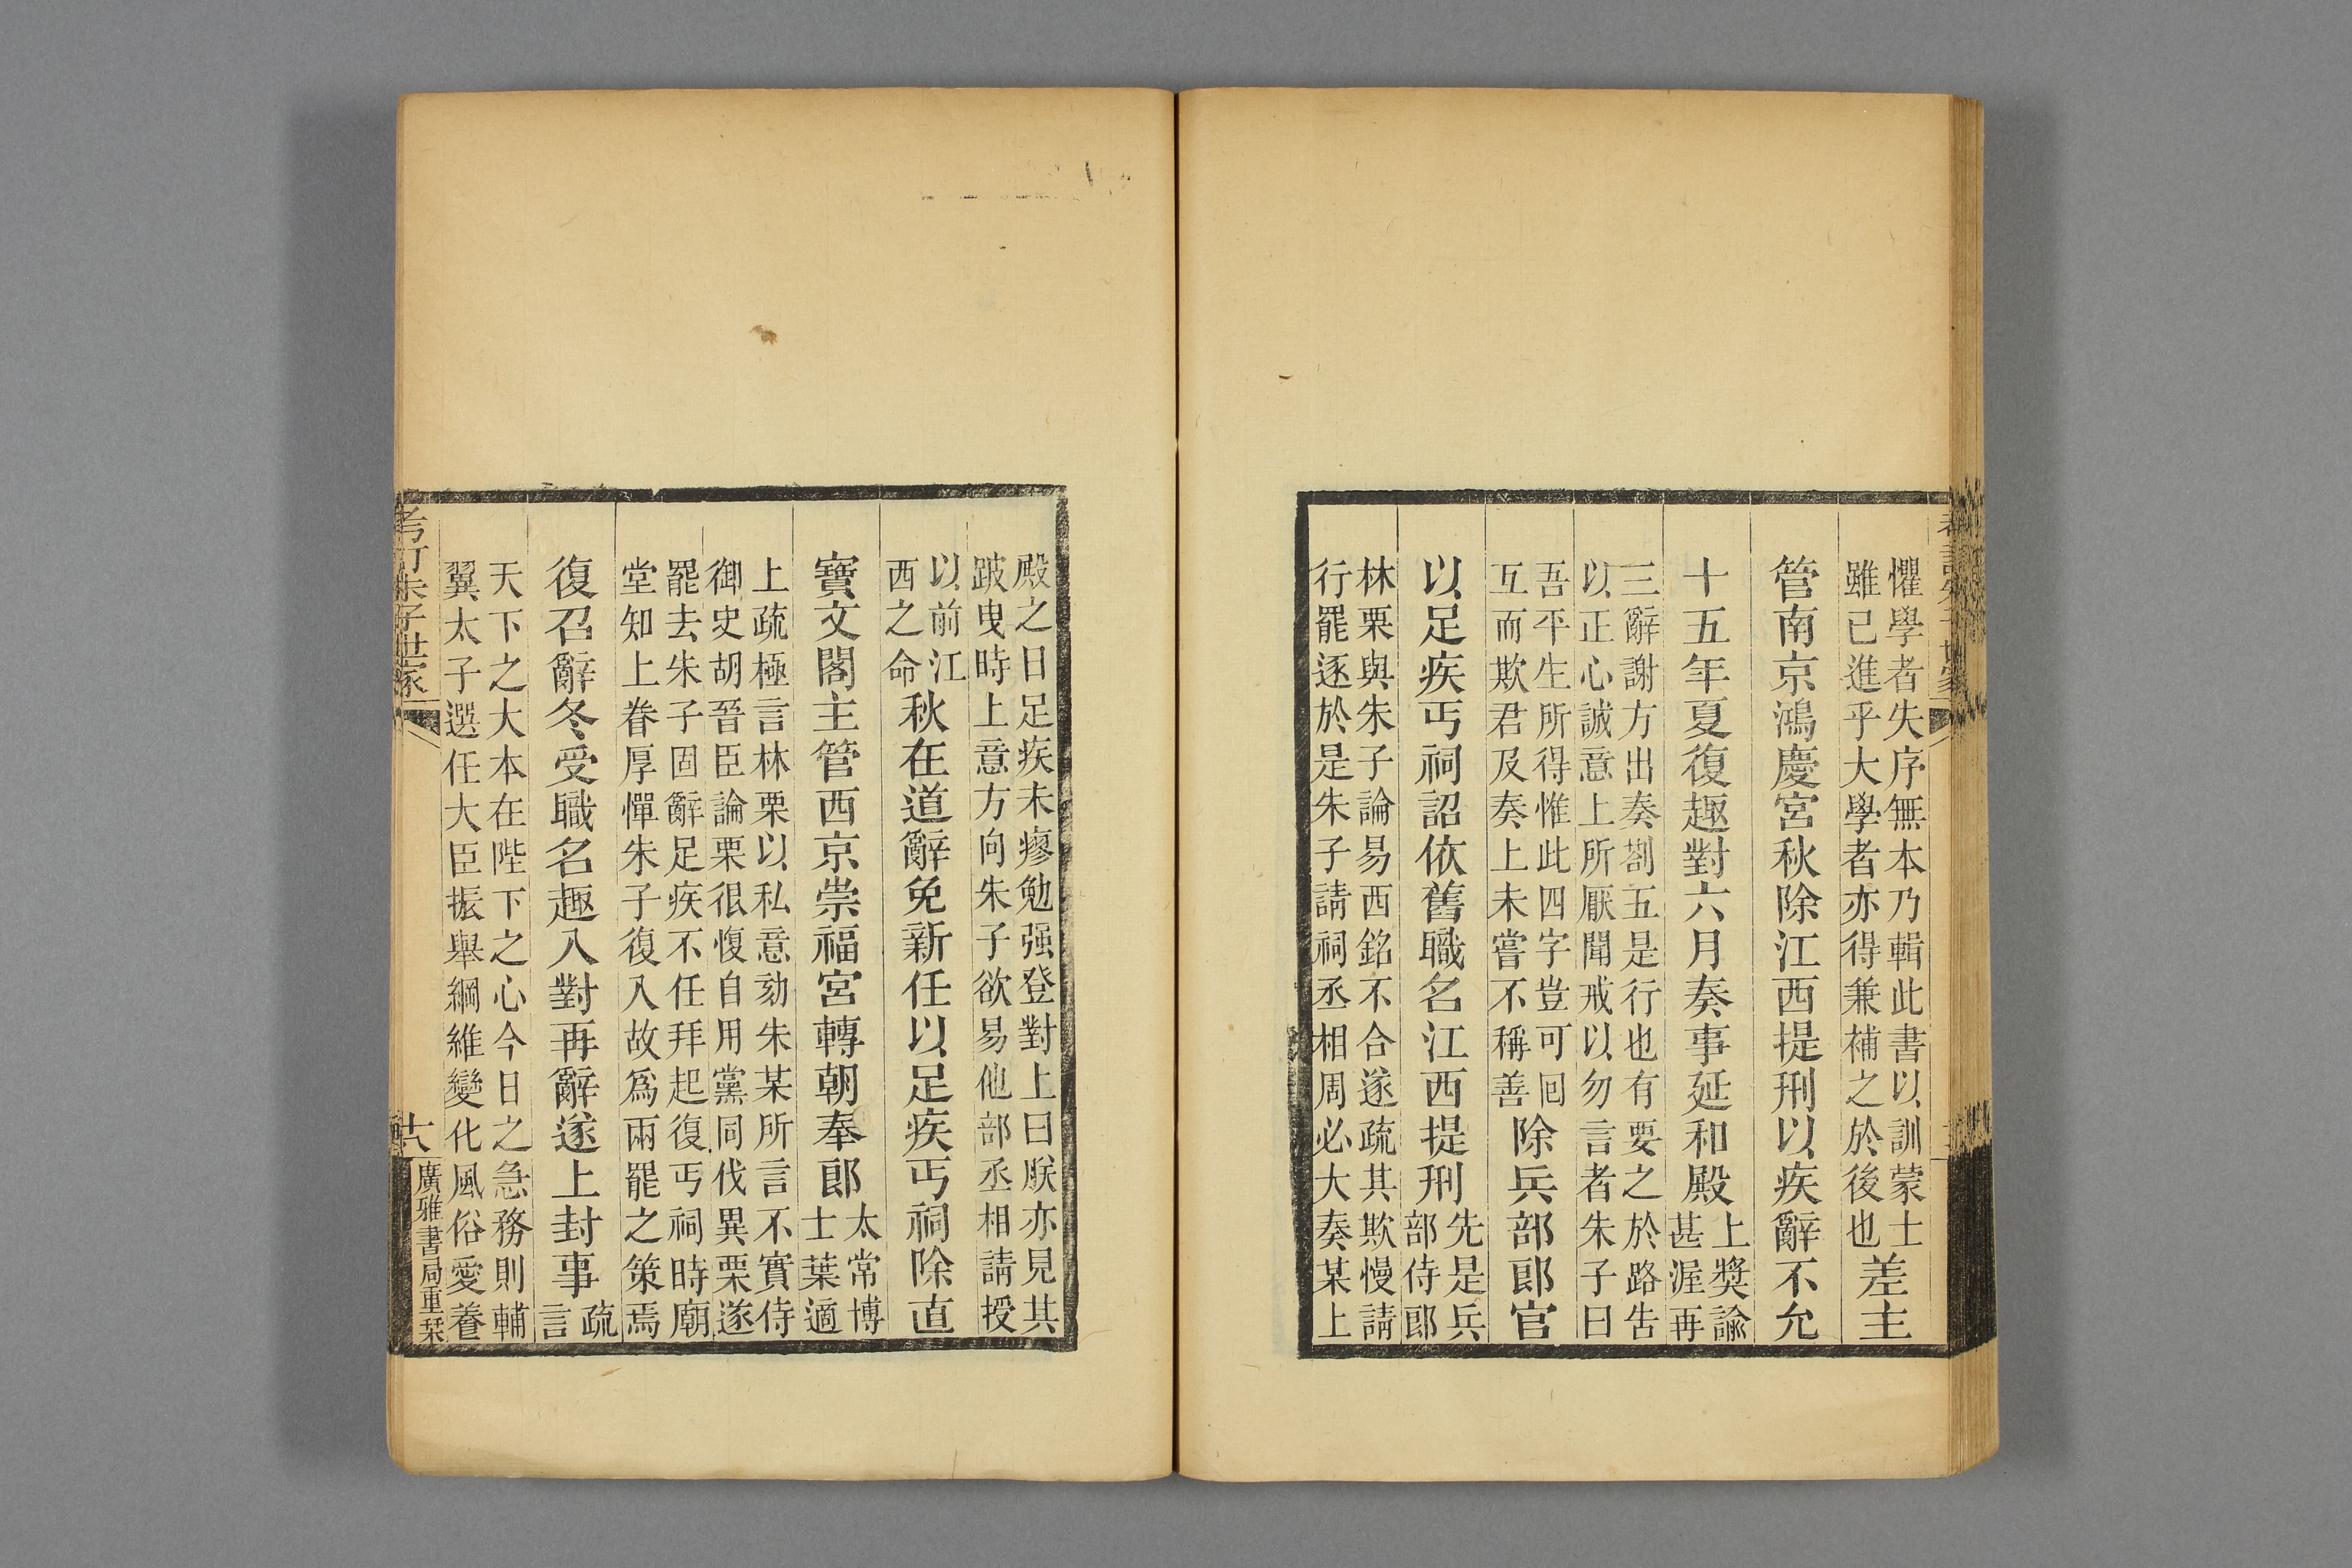 懼學者失序無本乃輯此書以訓蒙士
雖已進乎大學者亦得兼補之於後也
差主
管南京鴻慶宮秋除江西提刑以疾辭不允
十五年夏復趣對六月奏事延和殿
上獎諭
甚渥再
三辭謝方出奏劄五是行也有要之於路告
以正心誠意上所厭聞戒以勿言者朱子曰
吾平生所得惟此四字豈可囘
互而欺君及奏上未嘗不稱善
除兵部郎官
以足疾丐祠詔依舊職名江西提刑
先是兵
部侍郎
林栗與朱子論易西銘不合遂疏其欺慢請
行罷逐於是朱子請祠丞相周必大奏某上
殿之日足疾未瘳勉强登對上曰朕亦見其
跛曳時上意方向朱子欲易他部丞相請授
以前江
西之命
秋在道辭免新任以足疾丐祠除直
寶文閣主管西京崇福宮轉朝奉郎
太常博
士葉適
上疏極言林栗以私意劾朱某所言不實侍
御史胡晉臣論栗很愎自用黨同伐異栗遂
罷去朱子固辭足疾不任拜起復丐祠時廟
堂知上眷厚憚朱子復入故爲兩罷之策焉
復召辭冬受職名趣入對再辭遂上封事
疏
言
天下之大本在陛下之心今日之急務則輔
翼太子選任大臣振舉綱維變化風俗愛養
考訂朱子世家
十六
廣雅書局重栞